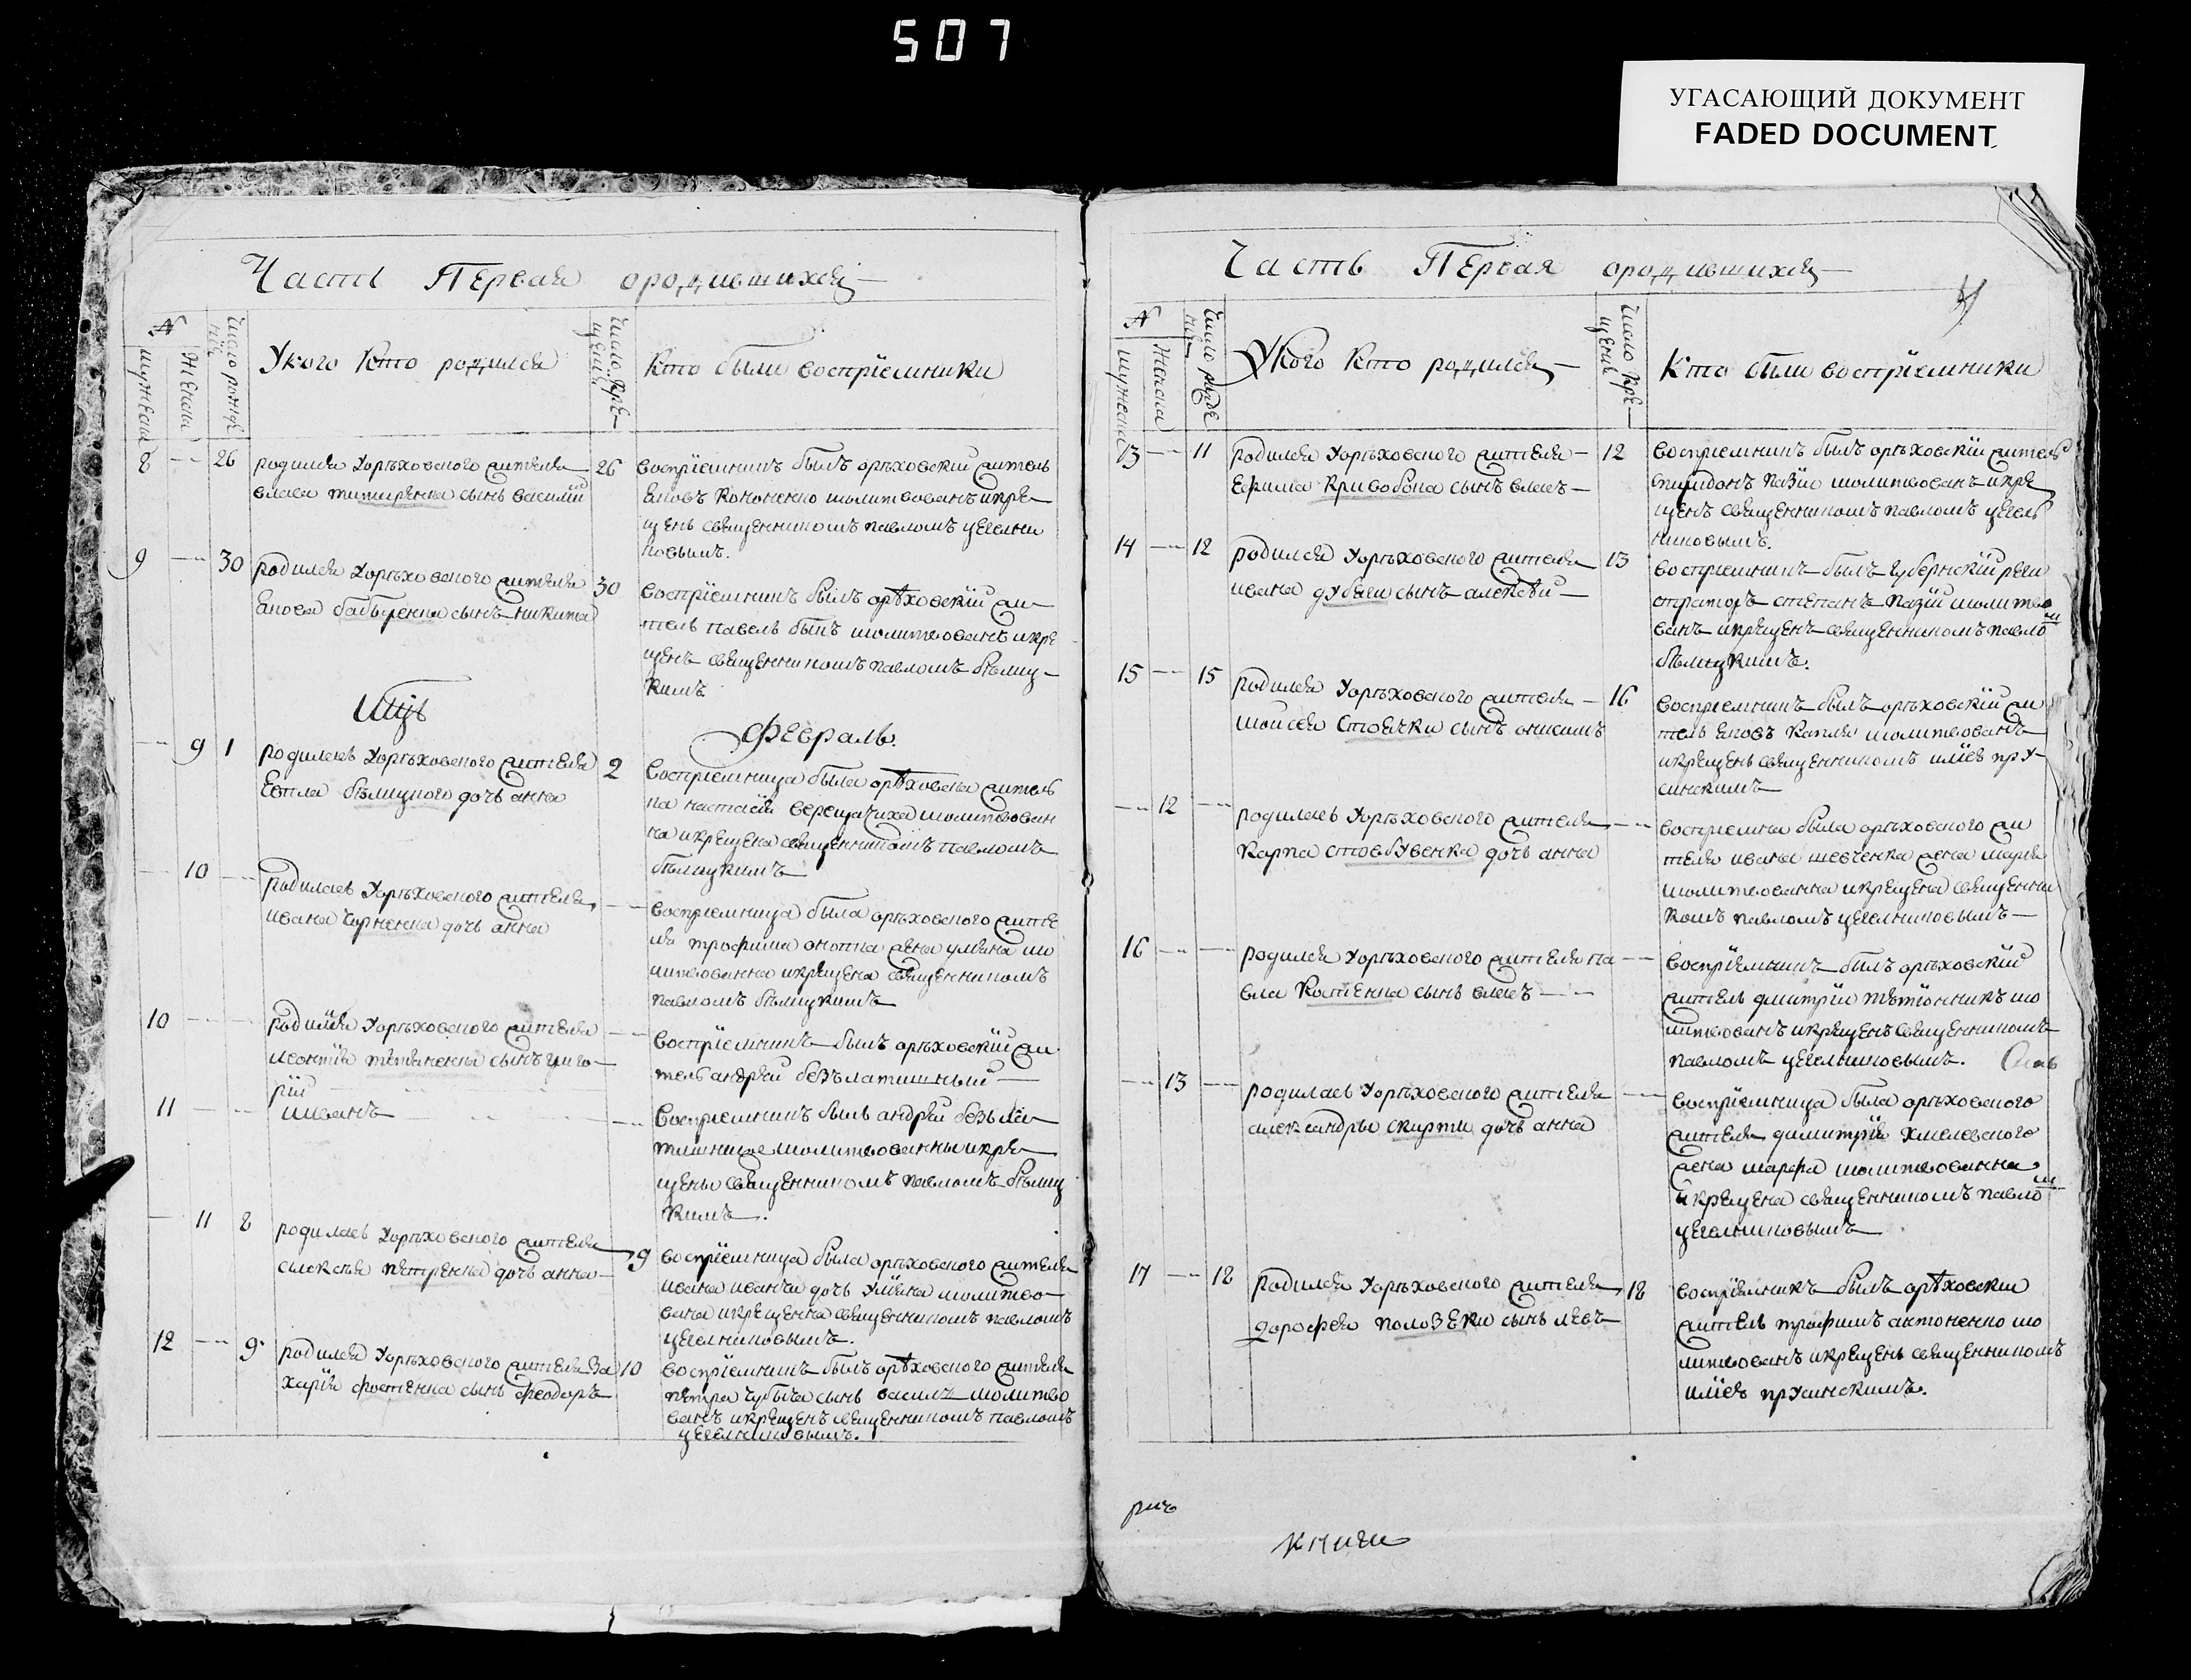 507
УГАСАЮЩИЙ ДОКУМЕНТ
FADED DOCUMENT
Часть Первая ородившихся
N
мужеска
Женска
Число рожде
нія
Укого Кто родился
Число Кре
щенія
Кто были воспріемники
8 26 родился Уорѣховского жителя
власа титаренка сынъ василій
26 воспріемникъ былъ орѣховскій житель
яковъ Кононенко молитвованъ икре
щенъ священникомъ павломъ цегелни
ковымъ.
9 30 родился Уорѣховского жителя
якова бабыренка сынъ никита
30 воспріемникъ былъ орѣховскій жи
тель павелъ быпъ молитвованъ икре
щенъ священникомъ павломъ бѣлиц
кимъ
Мцъ Февраль.
9 1 родилась Уорѣховского жителя
Евтла бѣлицкого дочь анна
2 воспріемница была орѣховска житель
ка настасія верещачиха молитвован
на икрещена священникомъ павломъ
бѣлицкимъ
10 родилась Уорѣховского жителя
ивана Черненка дочь анна
воспріемница была орѣховского жите
ля трофима жена уляна мо
литвованна икрещена священникомъ
павломъ бѣлицкимъ
10 родился Уорѣховского жителя
леонтія тетяненка сынъ григо
рій
воспріемникъ былъ орѣховскій жи
тель андрей безъ
11 иванъ
Воспріемникъ былъ андрей безъ
молитвованны икре
щены священникомъ павломъ бѣлиц
кимъ.
11 8 родилась Уорѣховского жителя
алексѣя петренка дочь анна
9 воспріемница была орѣховского жителя
ивана дочь Уляна молитво
вана икрещенна священникомъ павломъ
цегелниковымъ.
12 9 родился Уорѣховского жителя За
харія фостенка сынъ феодоръ
10 воспріемникъ былъ орѣховского жителя
петра сынъ василь молитво
ванъ икрещенъ священникомъ павломъ
цегелниковымъ.
Часть Первая ородившихся
4
N
мужеска
Женска
Число рожде
нія
Укого Кто родился
Число Кре
щенія
Кто были воспріемники
13 11 родился Уорѣховского жителя
Ефима Кривобока сынъ власъ
12 воспріемникъ былъ орѣховскій житель
спиридонъ пазій молитвованъ икре
щенъ священникомъ павломъ цегель
никовымъ.
14 12 родился Уорѣховского жителя
ивана сынъ алексѣй
13 воспріемникъ былъ губернскій реги
страторъ степанъ пазій молитво
ванъ икрещенъ священникомъ павло
м
бѣлицкимъ.
15 15 родился Уорѣховского жителя
мойсея Стоечки сынъ онисимъ
16 воспріемникъ былъ орѣховскій жи
тель яковъ Капля молитвованъ
икрещенъ священникомъ иліею пру
синскимъ
12 родилась Уорѣховского жителя
Карпа стовбувенка дочь анна
воспріемна была орѣховского жи
теля ивана шевченка жена марія
молитвованна икрещена священни
комъ павломъ цегелниковымъ
16 родился Уорѣховского жителя па
вла Костенка сынъ власъ
воспріемникъ былъ орѣховскій
житель дмитрій мо
литвованъ икрещенъ священникомъ
павломъ цегелниковымъ.
13 родилась Уорѣховского жителя
александры скирти дочь анна
воспріемница была орѣховского
жителя димитрія хмелевского
жена марфа молитвованна
икрещена священникомъ павло
м
цегелниковымъ
17 18 родился Уорѣховского жителя
дорофея половеки сынъ левъ
18 воспріемникъ былъ орѣховскій
житель трофимъ антоненко мо
литвованъ икрещенъ священникомъ
иліею прусинскимъ.
книги